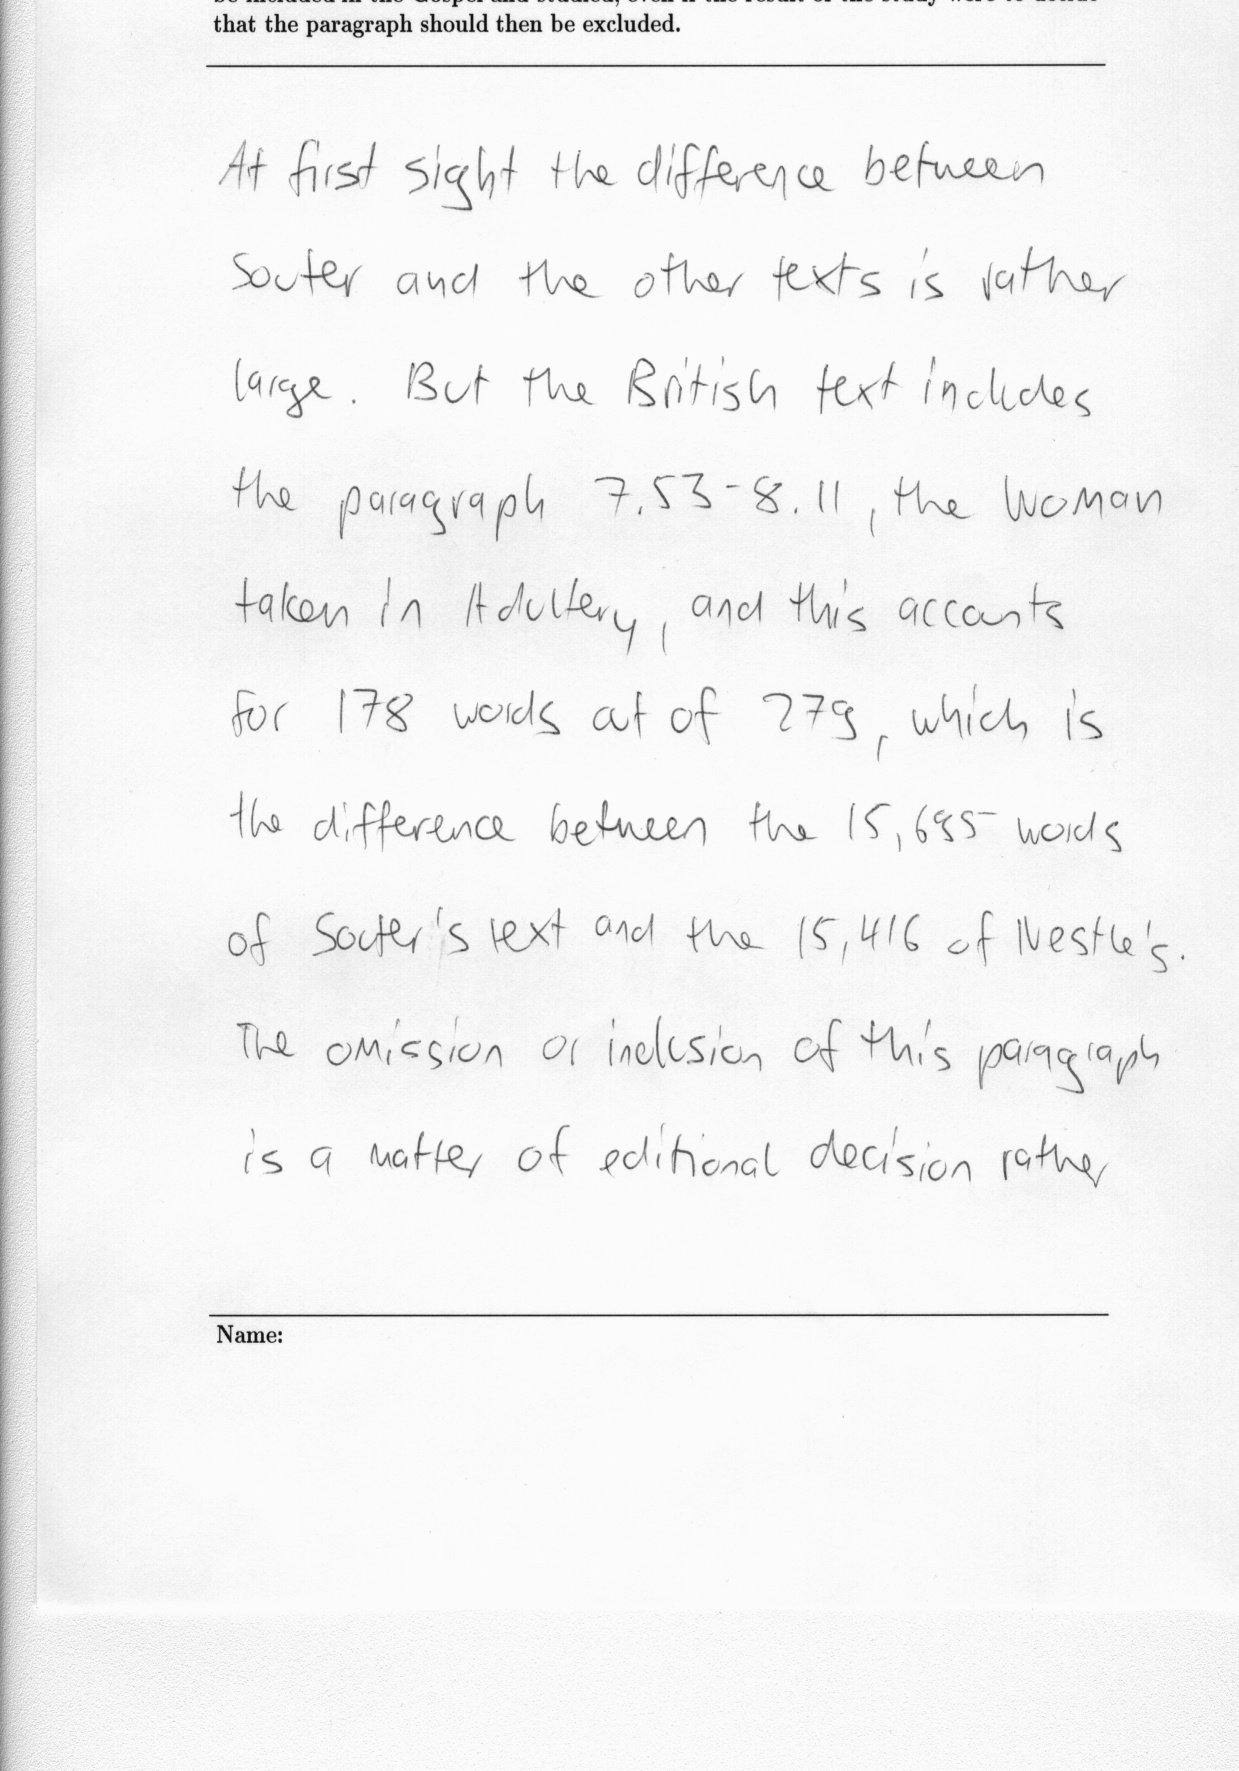 be included in the Gospel and studied, even if the result of the study were to decide
that the paragraph should then be excluded.
At first sight the difference between
Souter and the other texts is rather
large. But the British text includes
the paragraph 7.53-8.11, the Woman
taken in Adultery, and this accounts
for 178 words out of 279, which is
the difference between the 15,695 words
of Souter's text and the 15,416 of Nestle's.
The omission or inclusion of this paragraph
is a matter of editional decision rather
Name: